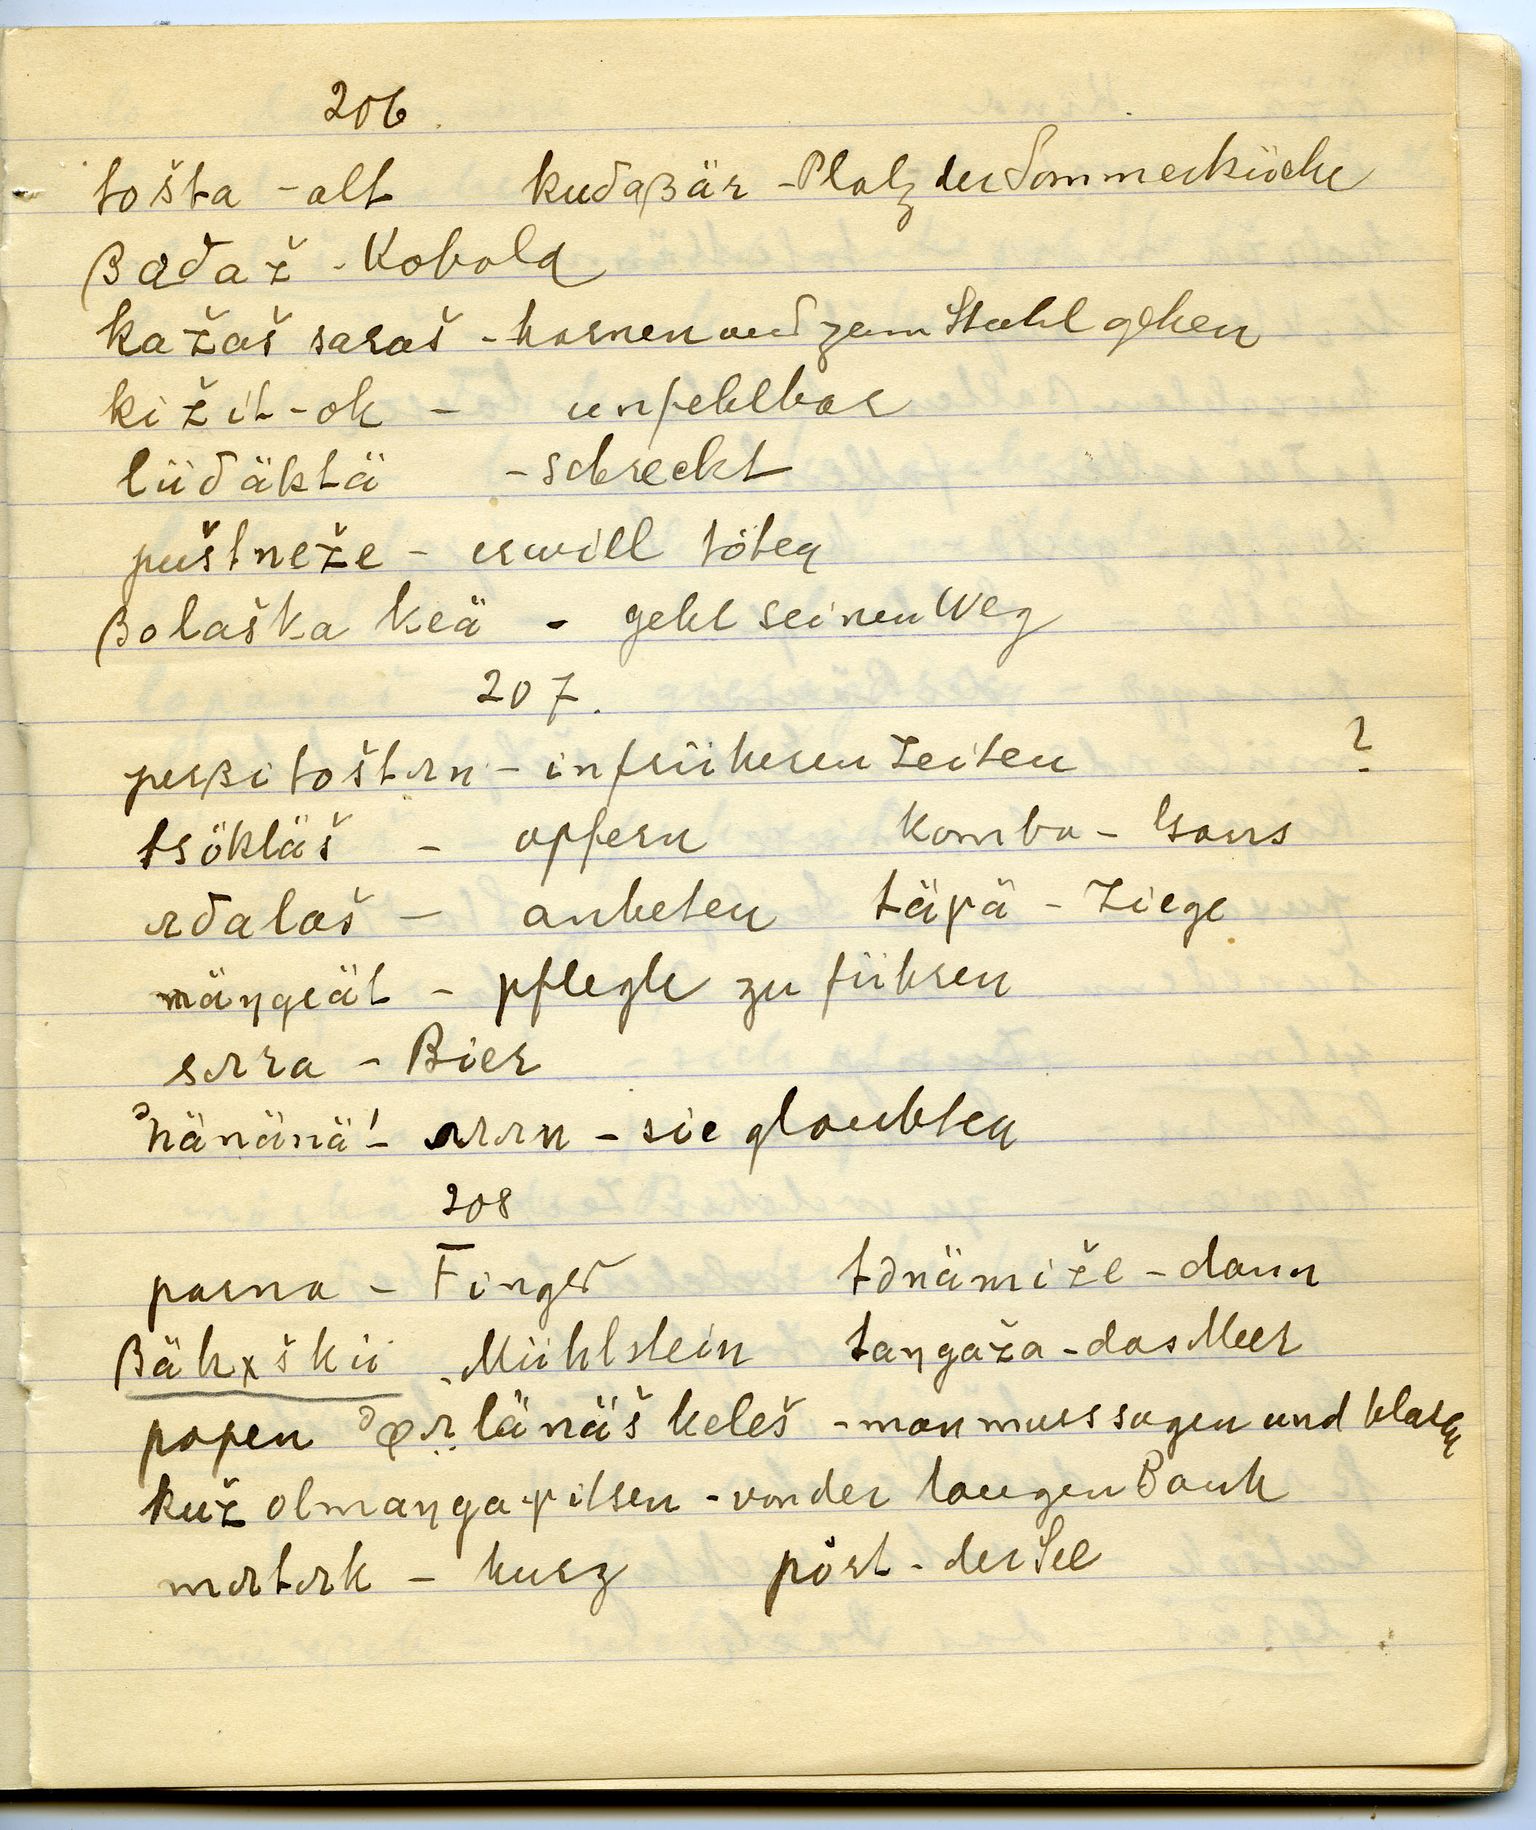 206.
tošta - alt kuδaβär - Platz der Sommerküche
βaδaž - Kobold
kažaš saraš - harnen und zum Stuhl gehen
kižit-ok - unfehlbar
lüδäktä - schreckt
puštneže - er will töten
βolaška keä - geht seinen Weg
207.
perβi toštən - in früheren Zeiten ?
tsökläš - opfern kombo - Gans
əδalaš - anbeten täγä - Ziege
mäŋgeät - pflegte zu führen
səra - Bier
- sie glaubten
208
parna - Finger tənämiže - dann
βäkχškü - Mühlstein taŋgəža - das Meer
popen keleš - man muss sagen und
kuž olmaŋga γitsen - von der langen Bank
mətək - kurz pört - der See